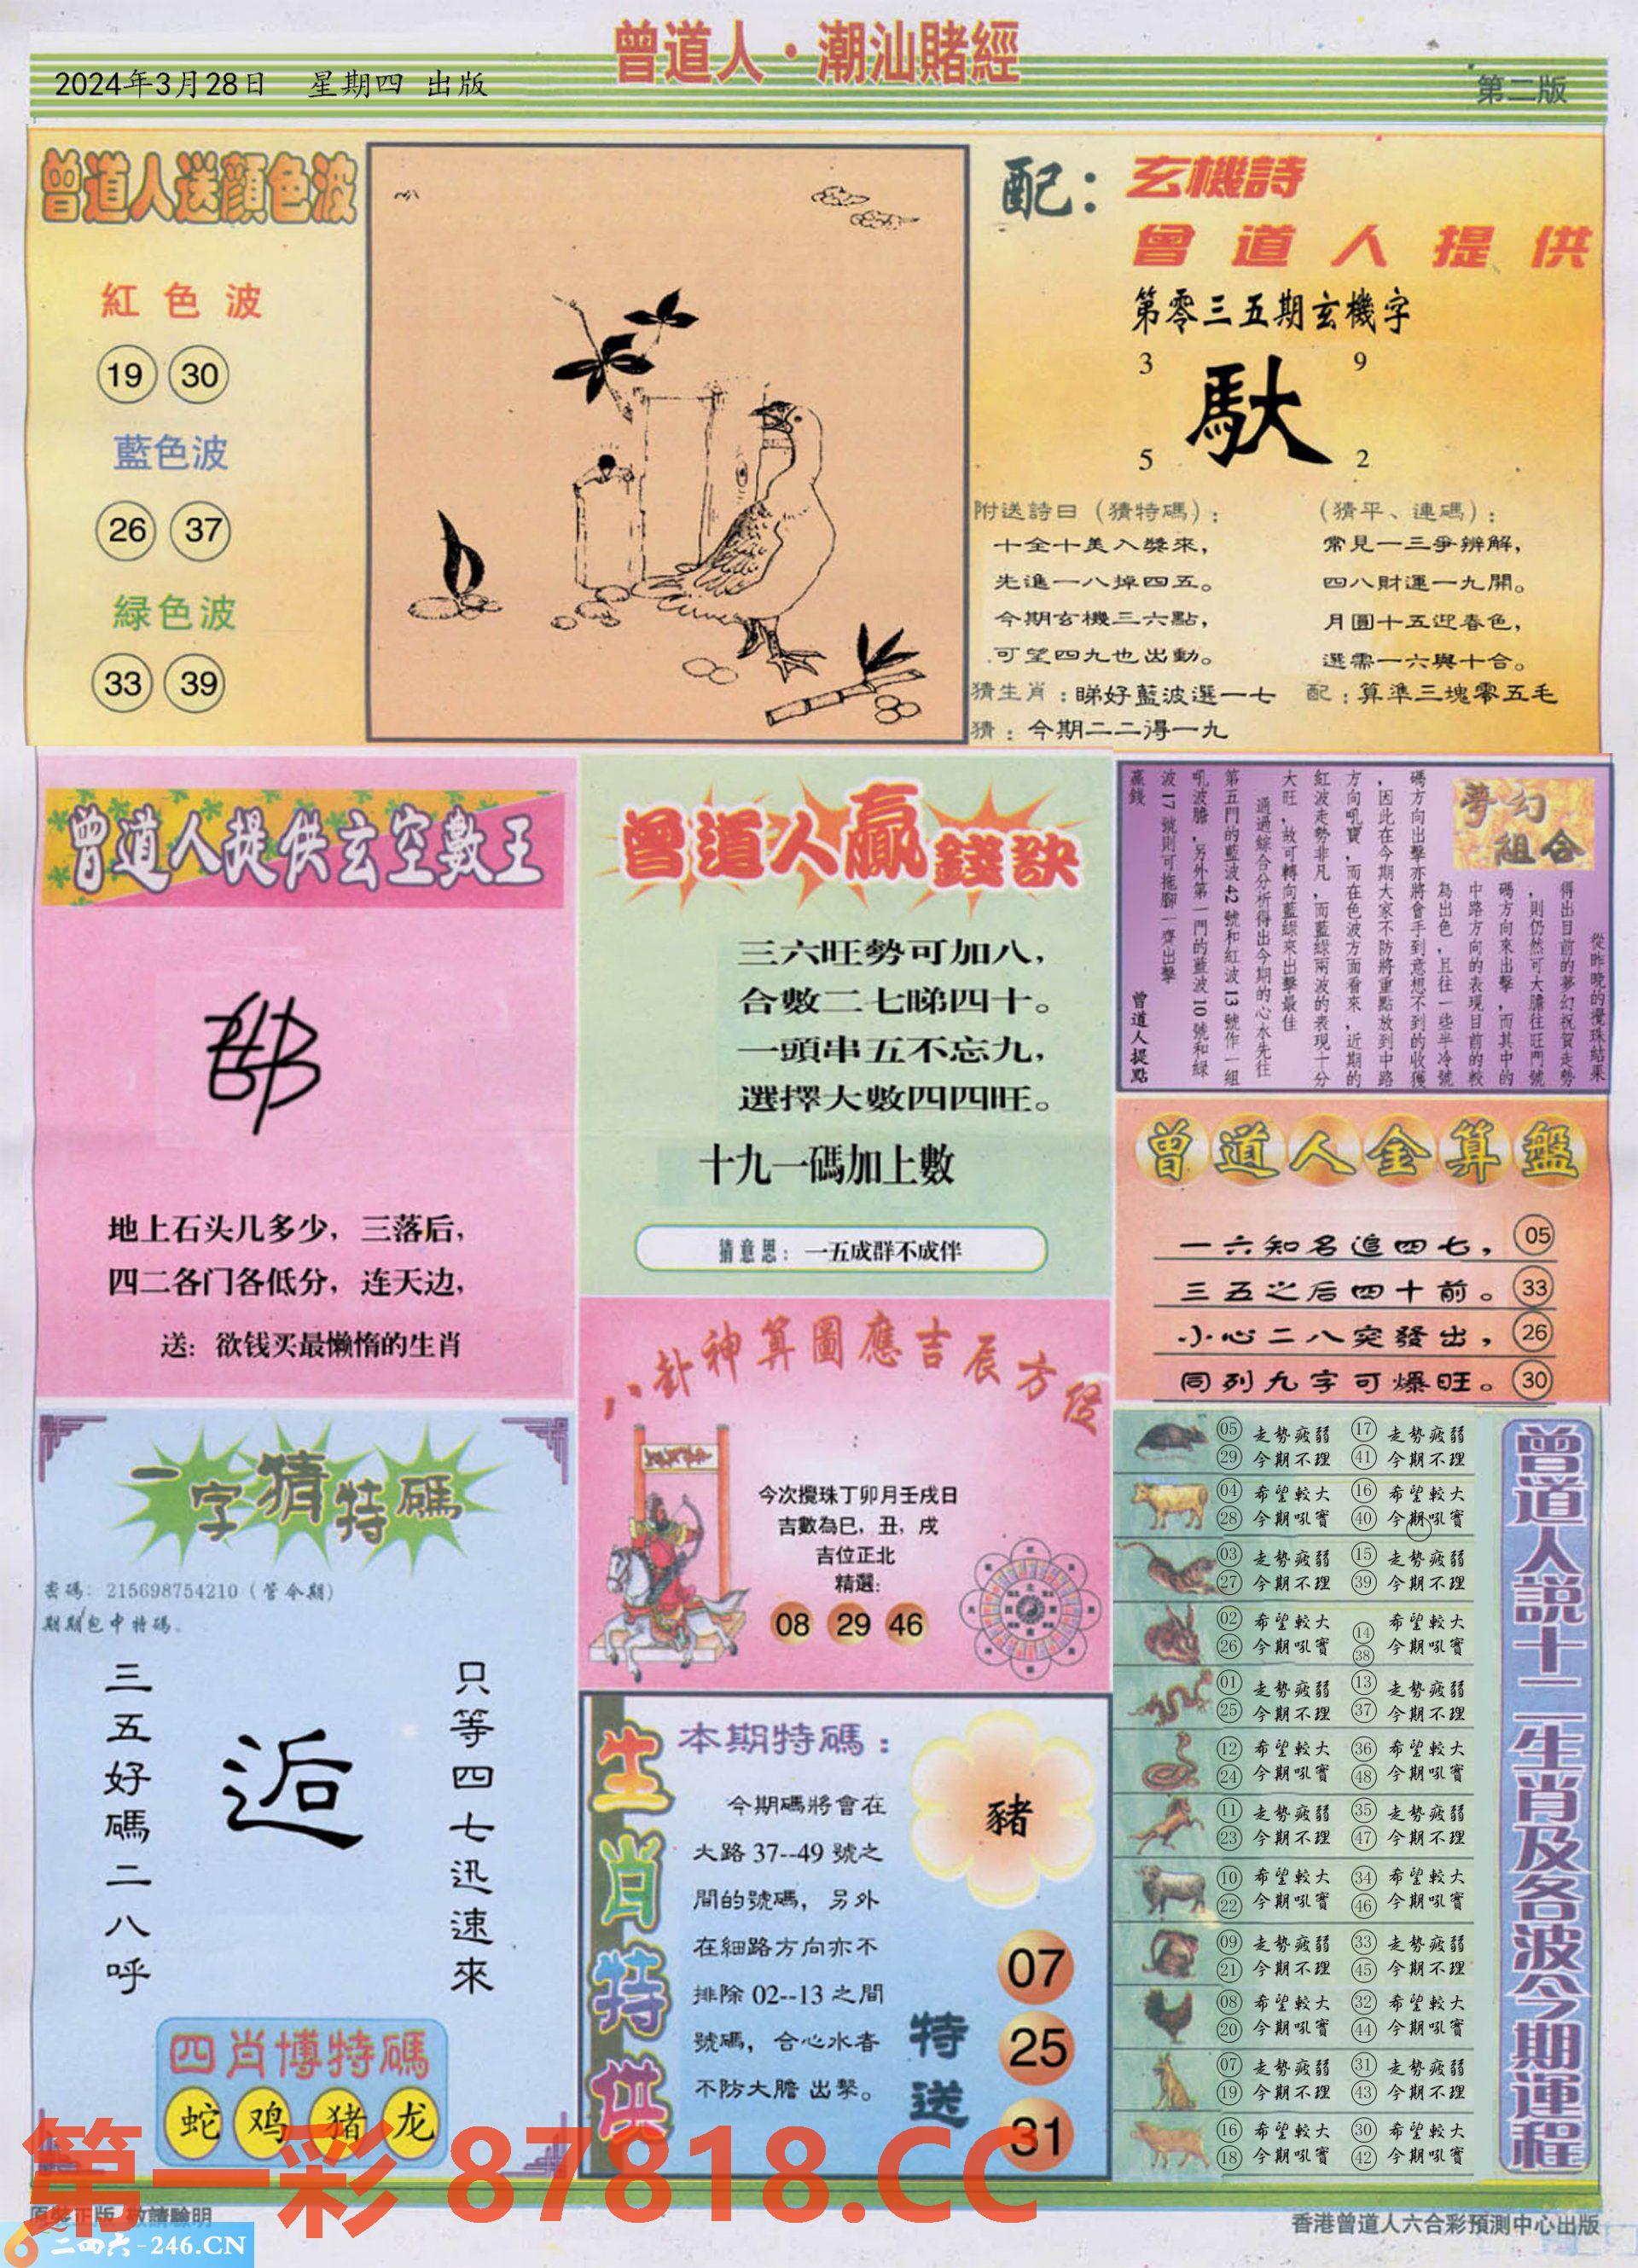 曾道人·潮汕賭經
2024年3月28日 星期四 出版
第二版
曾道人送顔色波
紅色波
19 30
藍色波
26 37
緑色波
33 39
配：玄機詩
曾道人提供
第零三五期玄機字
3 9
馱
5 2
附送詩曰（猜特碼）：
十全十美入獎來，
先進一八掉四五。
今期玄機三六點，
可望四九也出動。
（猜平、連碼）：
常見一三爭辨解，
四八財運一九開。
月圓十五迎春色，
選需一六與十合。
猜生肖：睇好藍波選一七 配：算準三塊零五毛
猜：今期二二得一九
曾道人提供玄空數王
地上石头几多少，三落后，
四二各门各低分，连天边，
送：欲钱买最懒惰的生肖
曾道人贏錢訣
三六旺勢可加八，
合數二七睇四十。
一頭串五不忘九，
選擇大數四四旺。
十九一碼加上數
猜意思：一五成群不成伴
夢幻
組合
從昨晚的攪珠結果
得出目前的夢幻祝賀走勢
，則仍然可大膽往旺門號
碼方向來出擊，而其中的
中路方向的表現目前的較
為出色，且往一些半冷號
碼方向出擊亦將會手到意想不到的收獲
，因此在今期大家不防將重點放到中路
方向吼寶，而在色波方面看來，近期的
紅波走勢非凡，而藍綠兩波的表現十分
大旺，故可轉向藍綠來出擊最佳
通過綜合分析得出今期的心水先往
第五門的藍波42號和紅波13號作一組
吼波膽，另外第一門的藍波10號和綠
波17號則可拖腳一齊出擊
贏錢
曾道人提點
曾道人金算盤
一六知名追四七， 05
三五之后四十前。 33
小心二八突發出， 26
同列九字可爆旺。 30
八卦神算圖應吉辰方位
今次攪珠丁卯月壬戌日
吉數為巳，丑，戌
吉位正北
精選：
08 29 46
一字猜特碼
密碼：215698754210（管今期）
期期包中特碼。
三五好碼二八呼
逅
只等四七迅速來
四肖博特碼
蛇 鸡 猪 龙
生肖特供
本期特碼：
豬
今期碼將會在
大路37--49號之
間的號碼，另外
在細路方向亦不
排除02--13之間
號碼，合心水者
不防大膽出擊。
特送
07
25
31
曾道人說十二生肖及各波今期運程
05 走勢疲弱 17 走勢疲弱
29 今期不理 41 今期不理
04 希望較大 16 希望較大
28 今期吼寶 40 今期吼寶
03 走勢疲弱 15 走勢疲弱
27 今期不理 39 今期不理
02 希望較大 14 希望較大
26 今期吼寶 38 今期吼寶
01 走勢疲弱 13 走勢疲弱
25 今期不理 37 今期不理
12 希望較大 36 希望較大
24 今期吼寶 48 今期吼寶
11 走勢疲弱 35 走勢疲弱
23 今期不理 47 今期不理
10 希望較大 34 希望較大
22 今期吼寶 46 今期吼寶
09 走勢疲弱 33 走勢疲弱
21 今期不理 45 今期不理
08 希望較大 32 希望較大
20 今期吼寶 44 今期吼寶
07 走勢疲弱 31 走勢疲弱
19 今期不理 43 今期不理
16 希望較大 30 希望較大
18 今期吼寶 42 今期吼寶
第一彩 87818.CC
原裝正版 敬請驗明
二四六-246.CN
香港曾道人六合彩預測中心出版